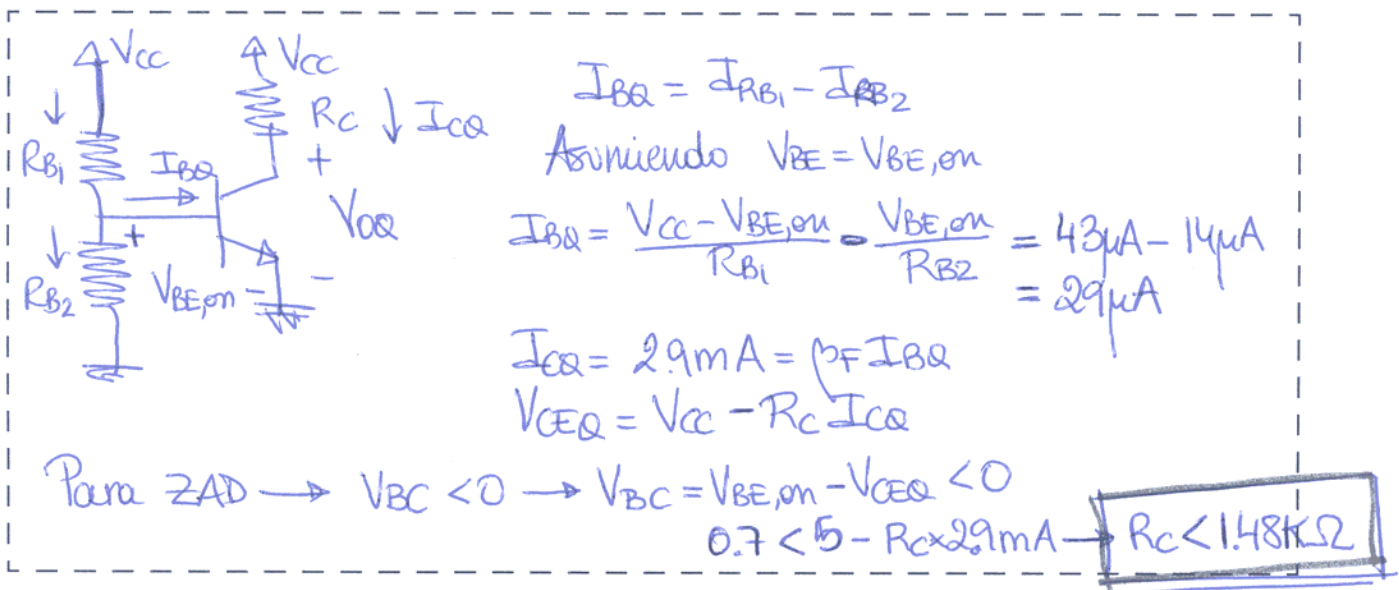 V_CC
V_CC
R_B1
R_C ↓ I_CQ
I_BQ
+
V_OQ
+
R_B2
V_BE,on -
-
I_BQ = I_RB1 - I_RB2
Asumiendo V_BE = V_BE,on
I_BQ = (V_CC - V_BE,on)/R_B1 - V_BE,on/R_B2 = 43μA - 14μA
= 29μA
I_CQ = 2.9mA = β_F I_BQ
V_CEQ = V_CC - R_C I_CQ
Para ZAD → V_BC < 0 → V_BC = V_BE,on - V_CEQ < 0
0.7 < 5 - R_C×2.9mA → R_C < 1.48KΩ